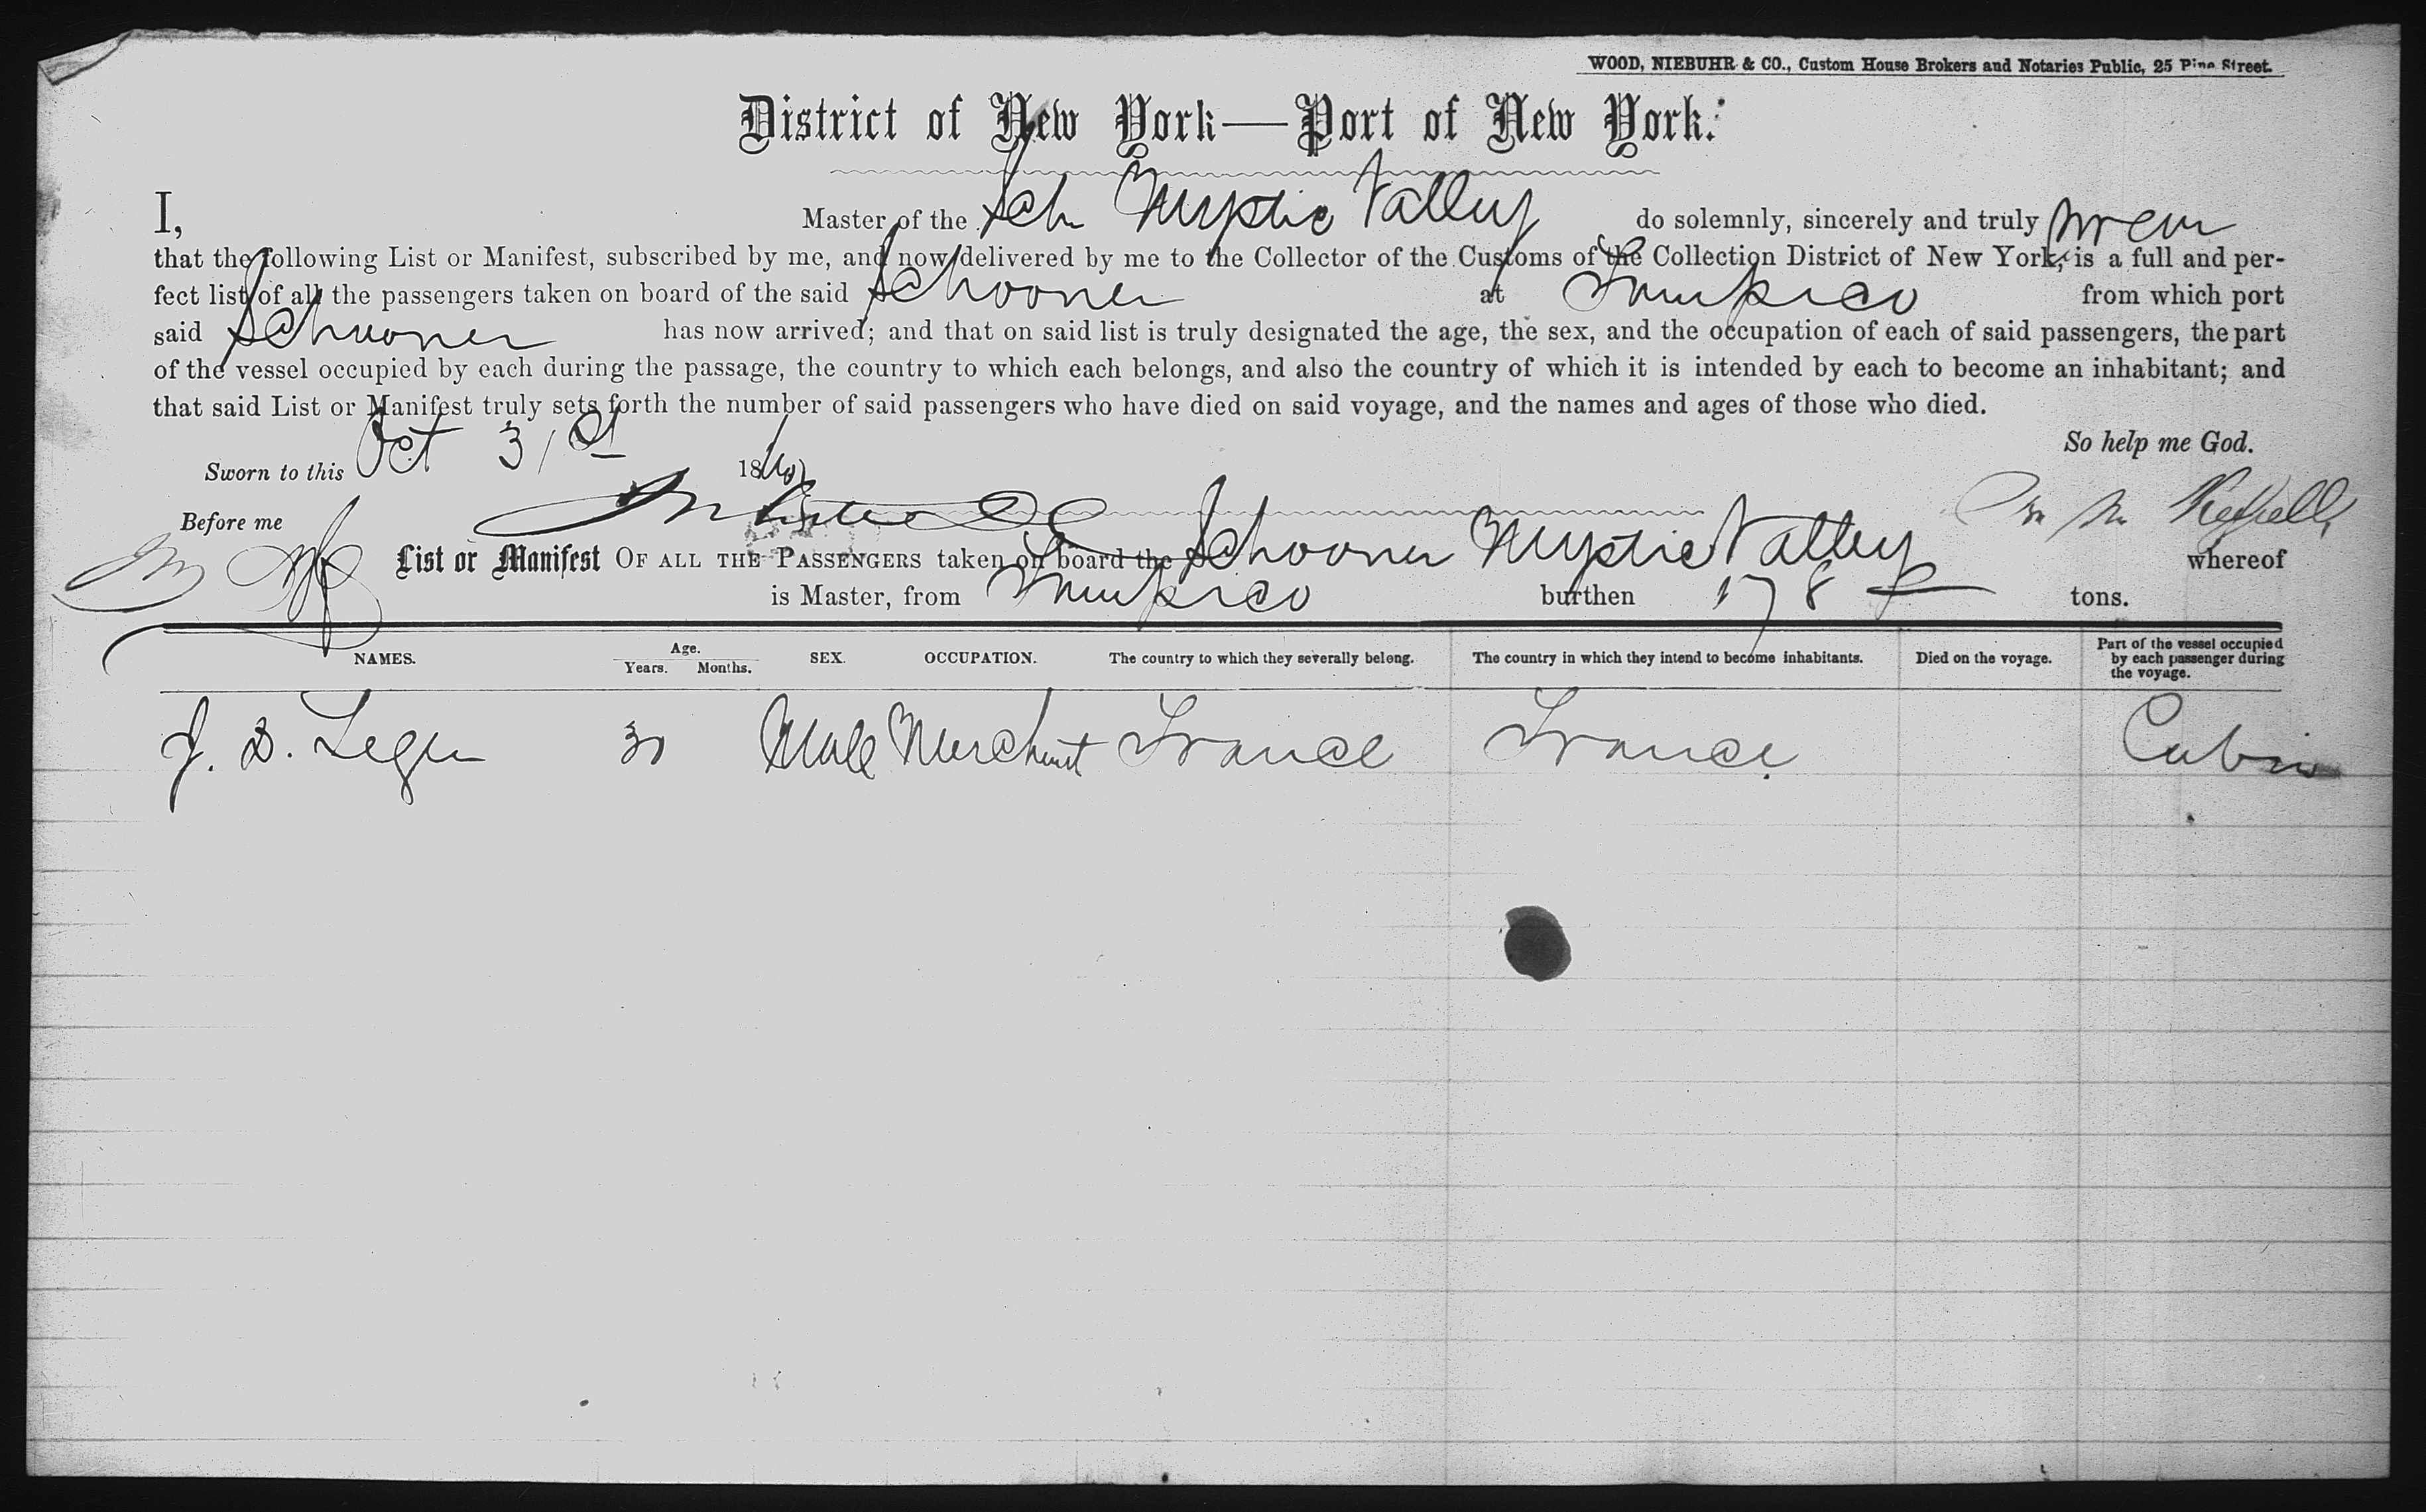 WOOD, NIEBUHR & CO., Custom House Brokers and Notaries Public, 25 Pine Street.
District of New York—Port of New York.
I, Master of the Sch Mystic Valley do solemnly, sincerely and truly swear
that the following List or Manifest, subscribed by me, and now delivered by me to the Collector of the Customs of the Collection District of New York, is a full and per-
fect list of all the passengers taken on board of the said Schooner at Tampico from which port
said Schooner has now arrived; and that on said list is truly designated the age, the sex, and the occupation of each of said passengers, the part
of the vessel occupied by each during the passage, the country to which each belongs, and also the country of which it is intended by each to become an inhabitant; and
that said List or Manifest truly sets forth the number of said passengers who have died on said voyage, and the names and ages of those who died.
So help me God.
Sworn to this Oct 31st 18
Before me
List or Manifest OF ALL THE PASSENGERS taken on board the Schooner Mystic Valley whereof
is Master, from Tampico burthen 178 tons.
NAMES. Age. Years. Months. SEX. OCCUPATION. The country to which they severally belong. The country in which they intend to become inhabitants. Died on the voyage. Part of the vessel occupied by each passenger during the voyage.
J. D. Leger 30 Male Merchant France France Cabin